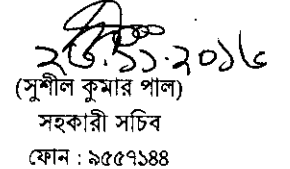 ২৩.১১.২০১৬
(সুশীল কুমার পাল)
সহকারী সচিব
ফোন : ৯৫৫৭১৪৪